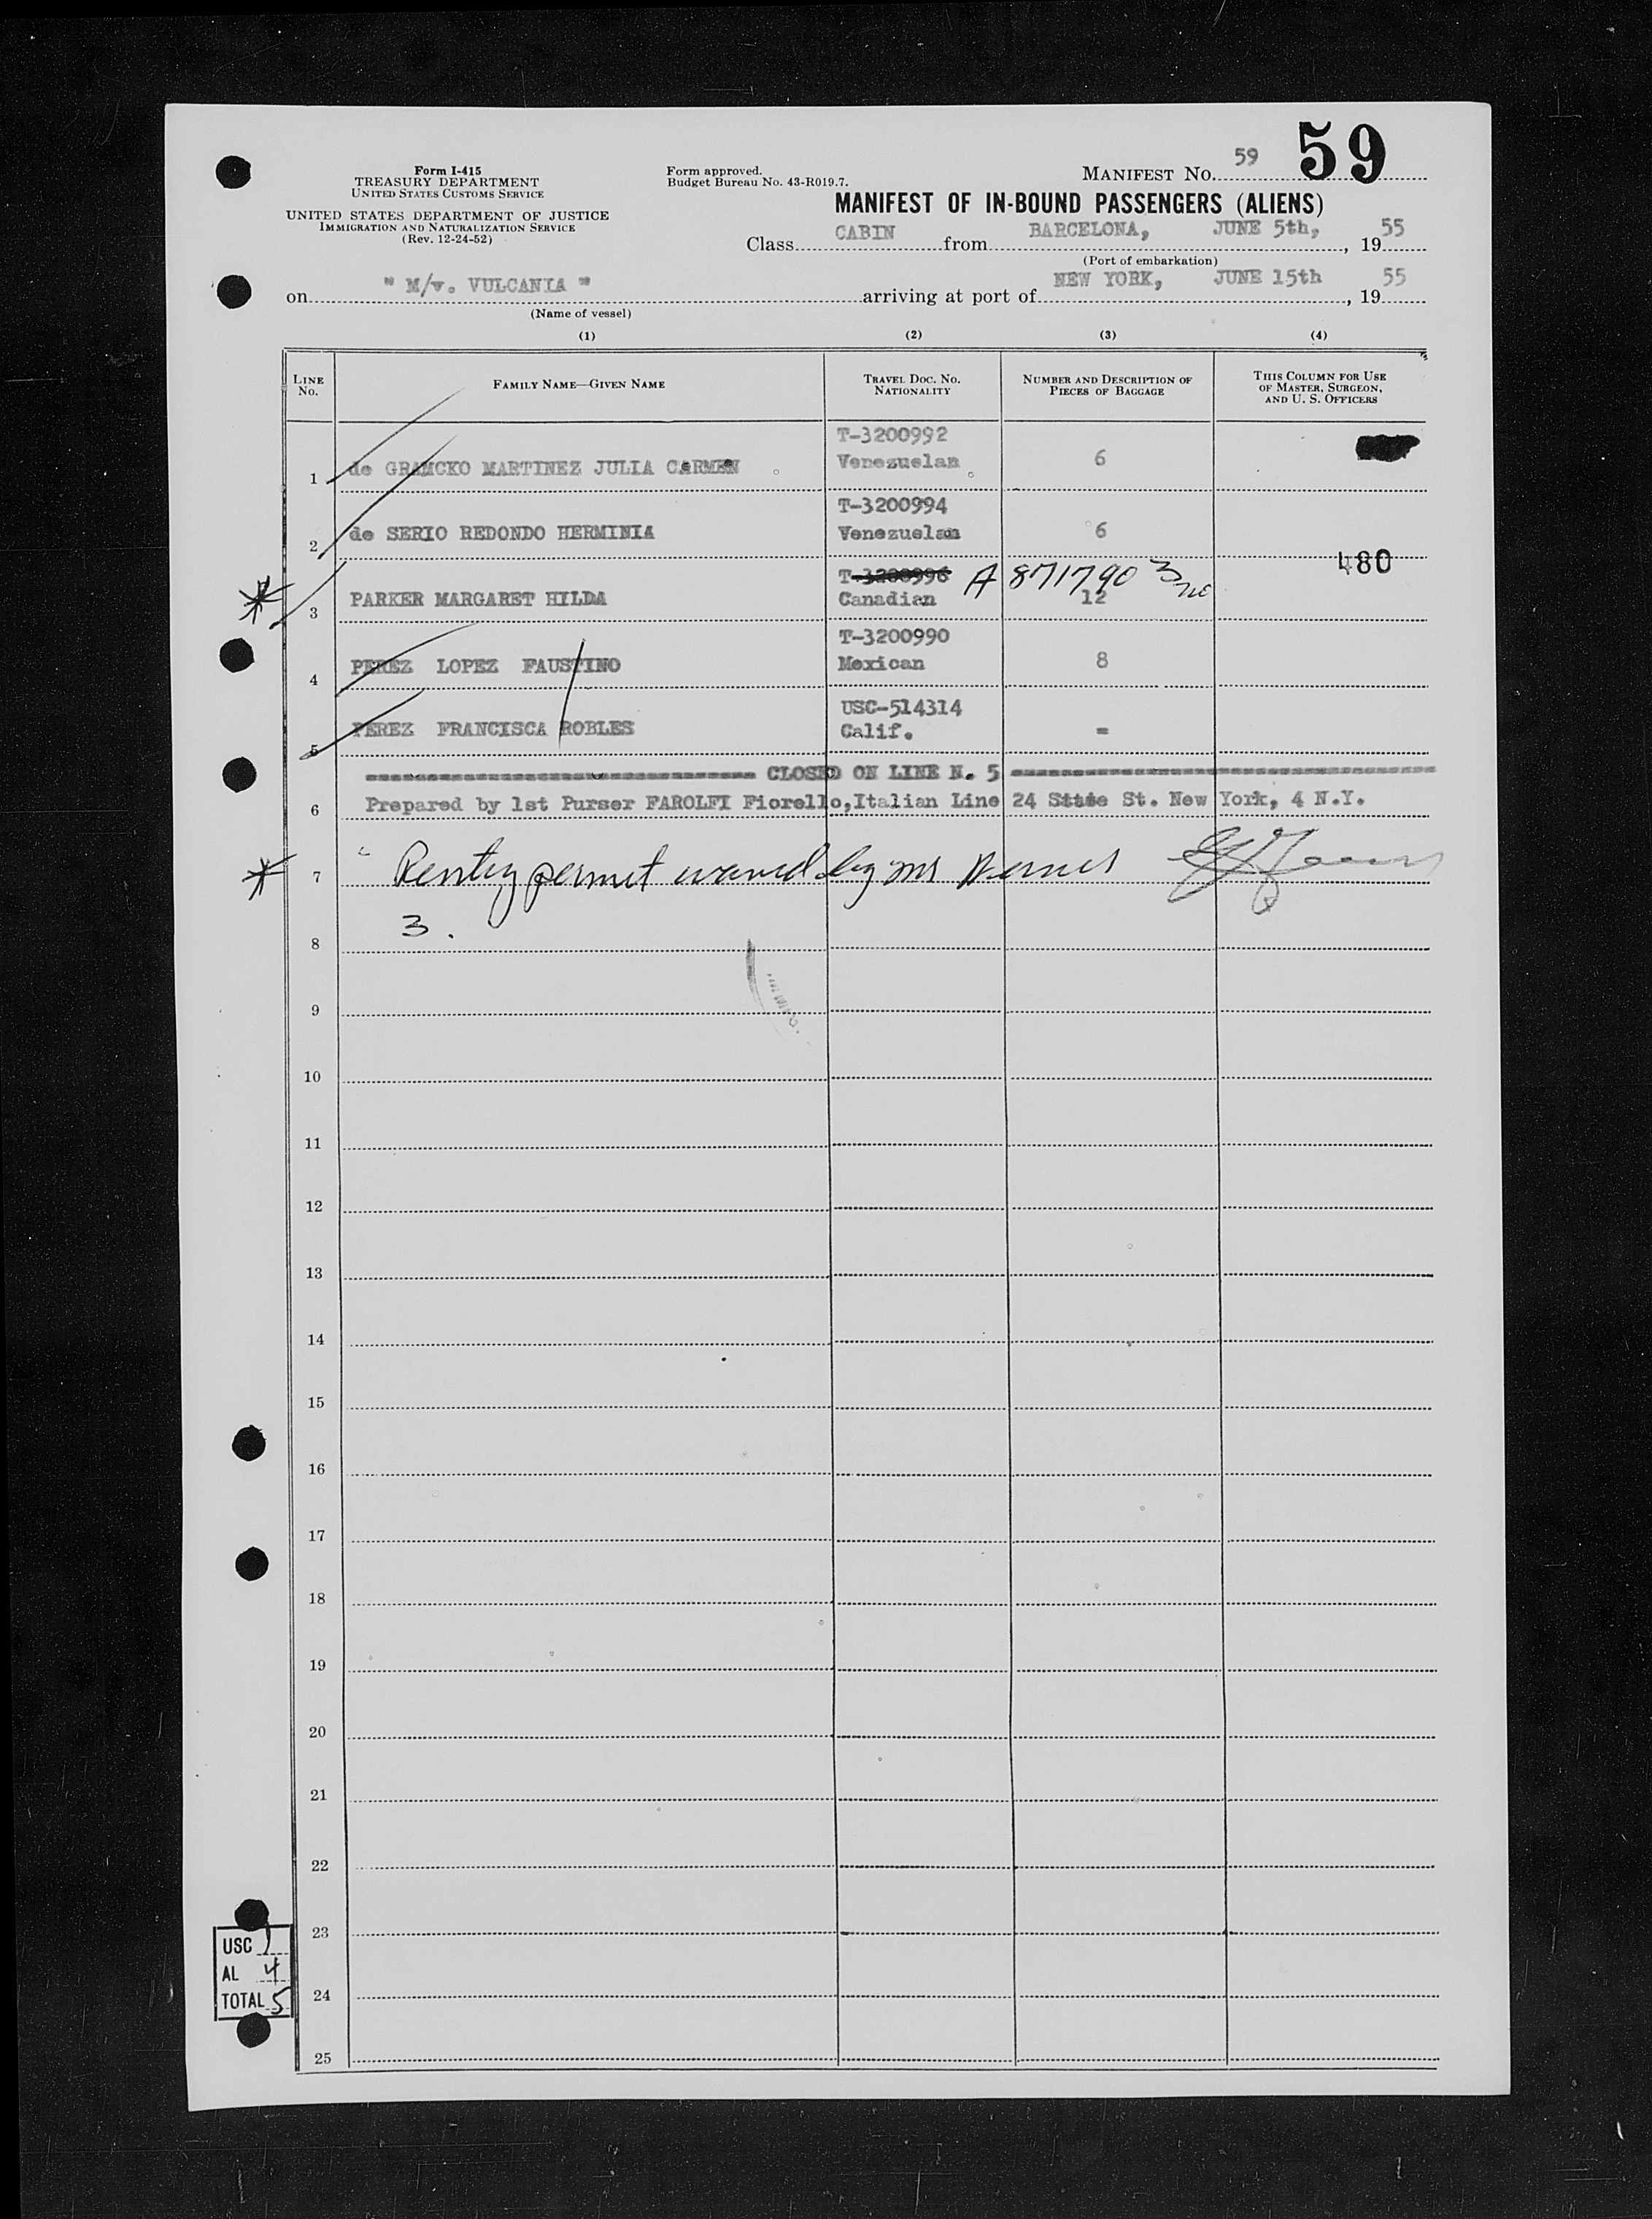 59
59
Form I-415
TREASURY DEPARTMENT
UNITED STATES CUSTOMS SERVICE
UNITED STATES DEPARTMENT OF JUSTICE
IMMIGRATION AND NATURALIZATION SERVICE
(Rev. 12-24-52)
Form approved.
Budget Bureau No. 43-R019.7.
MANIFEST NO.
MANIFEST OF IN-BOUND PASSENGERS (ALIENS)
Class CABIN from BARCELONA, JUNE 5th, , 19 55
(Port of embarkation)
on " M/v. VULCANIA " arriving at port of NEW YORK, JUNE 15th , 19 55
(Name of vessel)
(1) (2) (3) (4)
LINE NO. FAMILY NAME—GIVEN NAME TRAVEL DOC. NO. NATIONALITY NUMBER AND DESCRIPTION OF PIECES OF BAGGAGE THIS COLUMN FOR USE OF MASTER, SURGEON, AND U. S. OFFICERS
T-3200992
1 de GRAMCKO MARTINEZ JULIA CARMEN Venezuelan 6
T-3200994
2 de SERIO REDONDO HERMINIA Venezuelan 6
T-3200996 A 8717903 480
3 PARKER MARGARET HILDA Canadian 12
T-3200990
4 PEREZ LOPEZ FAUSTINO Mexican 8
USC-514314
5 PEREZ FRANCISCA ROBLES Calif. =
CLOSED ON LINE N. 5
6 Prepared by 1st Purser FAROLFI Fiorello,Italian Line 24 State St. New York, 4 N.Y.
7 Rentry permit waived by
3.
8
9
10
11
12
13
14
15
16
17
18
19
20
21
22
23
24
25
USC 1
AL 4
TOTAL 5